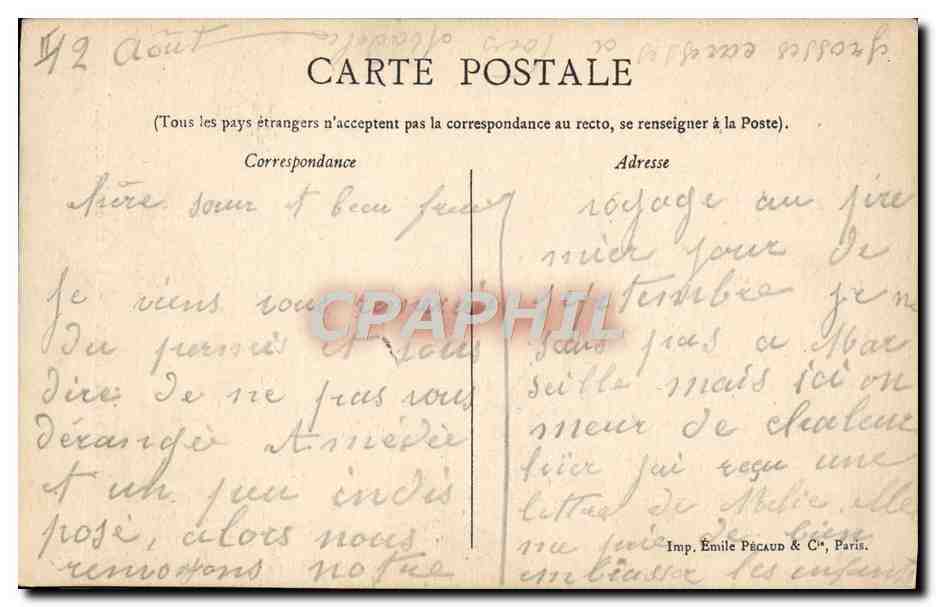 12 Août
Grosses caresses a tous
CARTE POSTALE
(Tous les pays étrangers n'acceptent pas la correspondance au recto, se renseigner à la Poste).
Correspondance
Adresse
CPAPHIL
sœur et beau frere
Je viens vous
du permis et vous
dire de ne pas vous
dérangé Amédée
et un peu indis
posé, alors nous
renvoyons notre
voyage au pre
mier jour de
septembre je ne
sais pas a Mar
seille mais ici on
meur de chaleur
hier jai reçu une
lettre de Melie elle
me prie de bien
embrasser les enfant
Imp. Émile PÉCAUD & Cie, Paris.